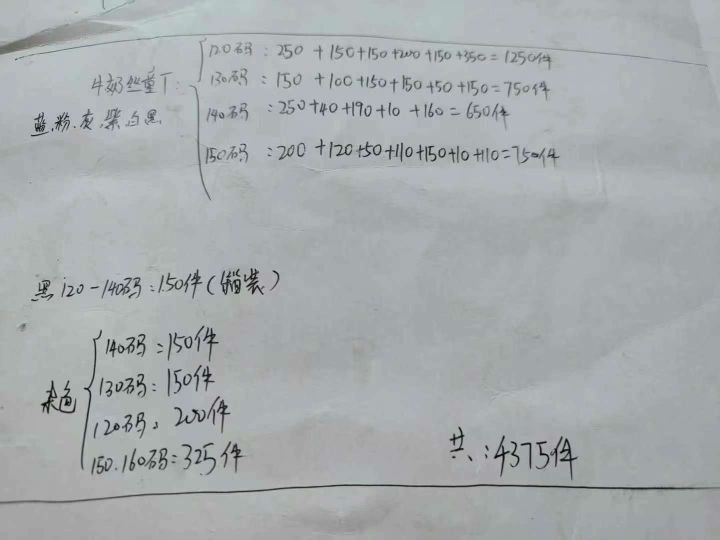 120码：250+150+150+200+150+350=1250件
牛奶丝童T：130码：150+100+150+150+50+150=750件
蓝.粉.灰.紫.白.黑
140码：250+40+190+10+160=650件
150码：200+120+50+110+150+10+110=750件
黑120-140码：150件(箱装)
140码：150件
杂色 130码：150件
120码：200件
150.160码：325件
共：4375件